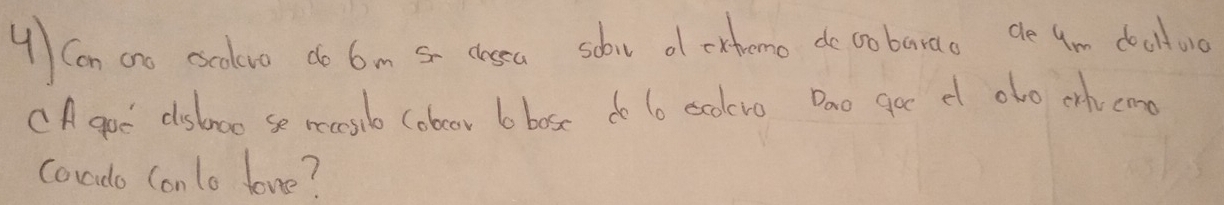 4) Con una escalera de 6m se desea subir al extremo de una barda de 4m de altura
¿A qué distancia se necesita colocar la base de la escalera para que el otro extremo
coincida con la torre?